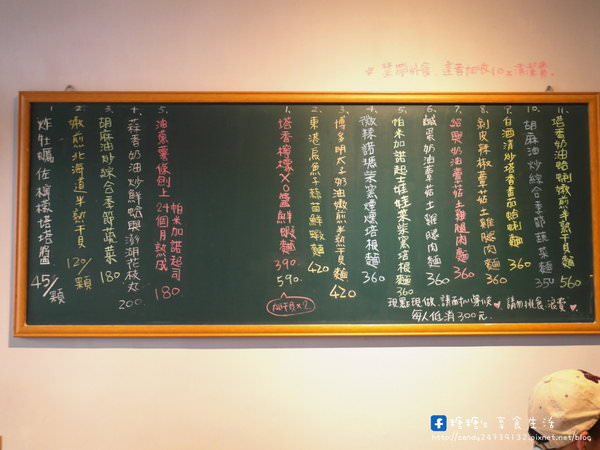 ※ 禁帶外食，違者加收10x清潔費。
1. 炸牡蠣佐檸檬塔塔醬 45/顆
2. 嫩煎北海道半熟干貝 120/顆
3. 胡麻油炒綜合季節蔬菜 180
4. 蒜香奶油炒鮮蛤與澎湖花枝丸 200
5. 油蔥薯條刨上24個月熟成帕米加諾起司 180
1. 塔香檸檬XO醬鮮蝦麵 390 590
2. 東港烏魚子蒜苗鮮蝦麵 420
3. 博多明太子奶油嫩煎半熟干貝麵 420
4. 微辣諾瑪柴窯煙燻培根麵 360
5. 帕米加諾起司娃娃菜柴窯培根麵 360
6. 鹹蛋奶油蕈菇土雞腿肉麵 360
7. 紹興奶油蕈菇土雞腿肉麵 360
8. 剝皮辣椒蕈菇土雞腿肉麵 360
9. 白酒清炒塔香畫面蛤蜊麵 360
10. 胡麻油炒綜合季節蔬菜麵 350
11. 塔香奶油蛤蜊嫩煎半熟干貝麵 560
現點現做，請面加等候♥ 請勿挑食，浪費♥
每人低消300元.
糖糖's 享食生活
http://candy24739132.pixnet.net/blog